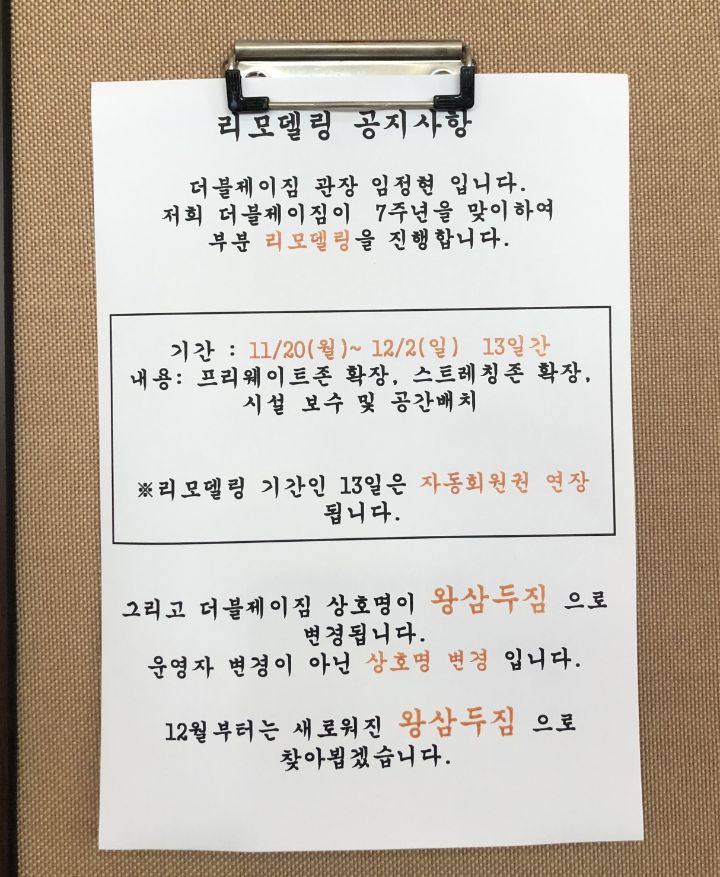 리모델링 공지사항
더블제이짐 관장 임정현 입니다.
저희 더블제이짐이 7주년을 맞이하여
부분 리모델링을 진행합니다.
기간 : 11/20(월)~ 12/2(일) 13일간
내용: 프리웨이트존 확장, 스트레칭존 확장,
시설 보수 및 공간배치
※리모델링 기간인 13일은 자동회원권 연장
됩니다.
그리고 더블제이짐 상호명이 왕삼두짐 으로
변경됩니다.
운영자 변경이 아닌 상호명 변경 입니다.
12월부터는 새로워진 왕삼두짐 으로
찾아뵙겠습니다.